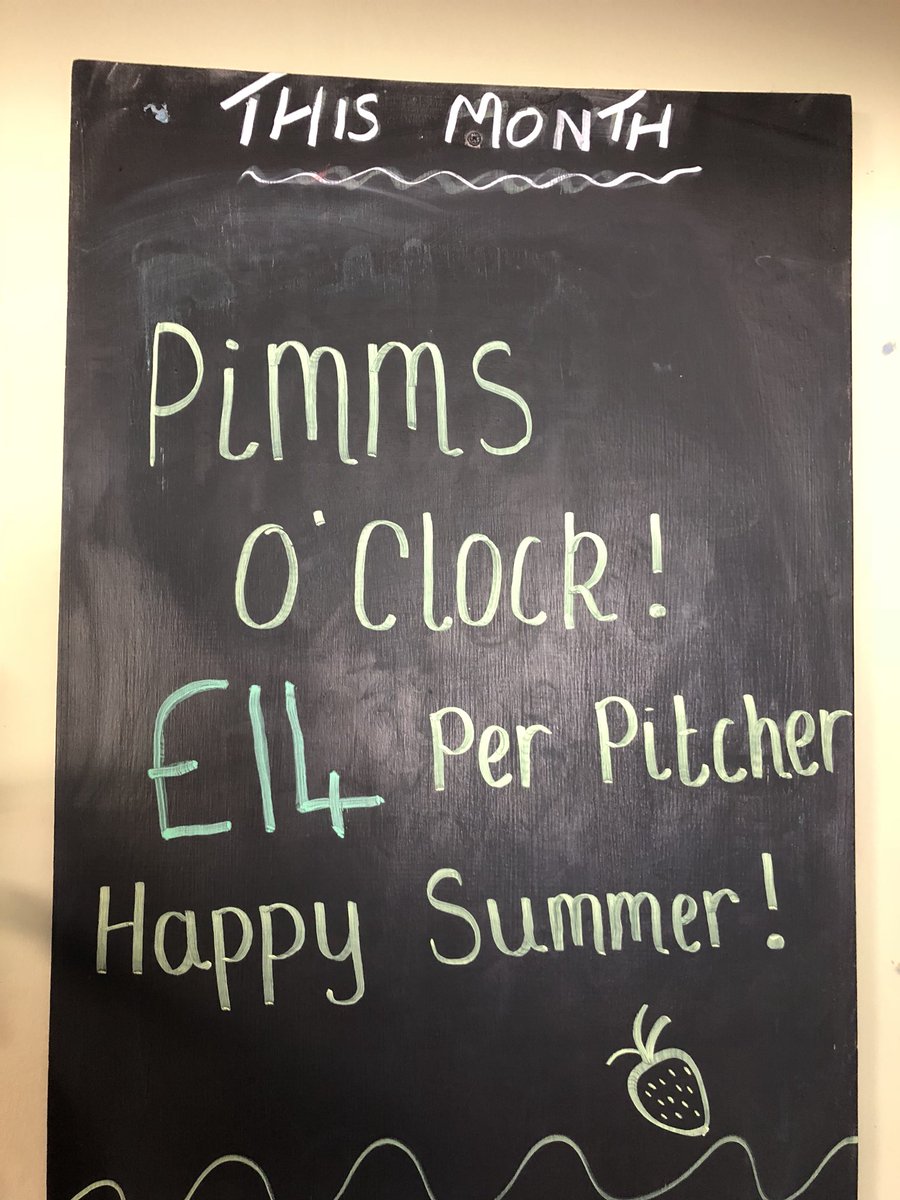 THIS MONTH
Pimms
O'Clock!
£14 Per Pitcher
Happy Summer!